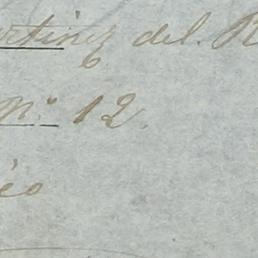 rtinez del. R
Nº 12.
eo